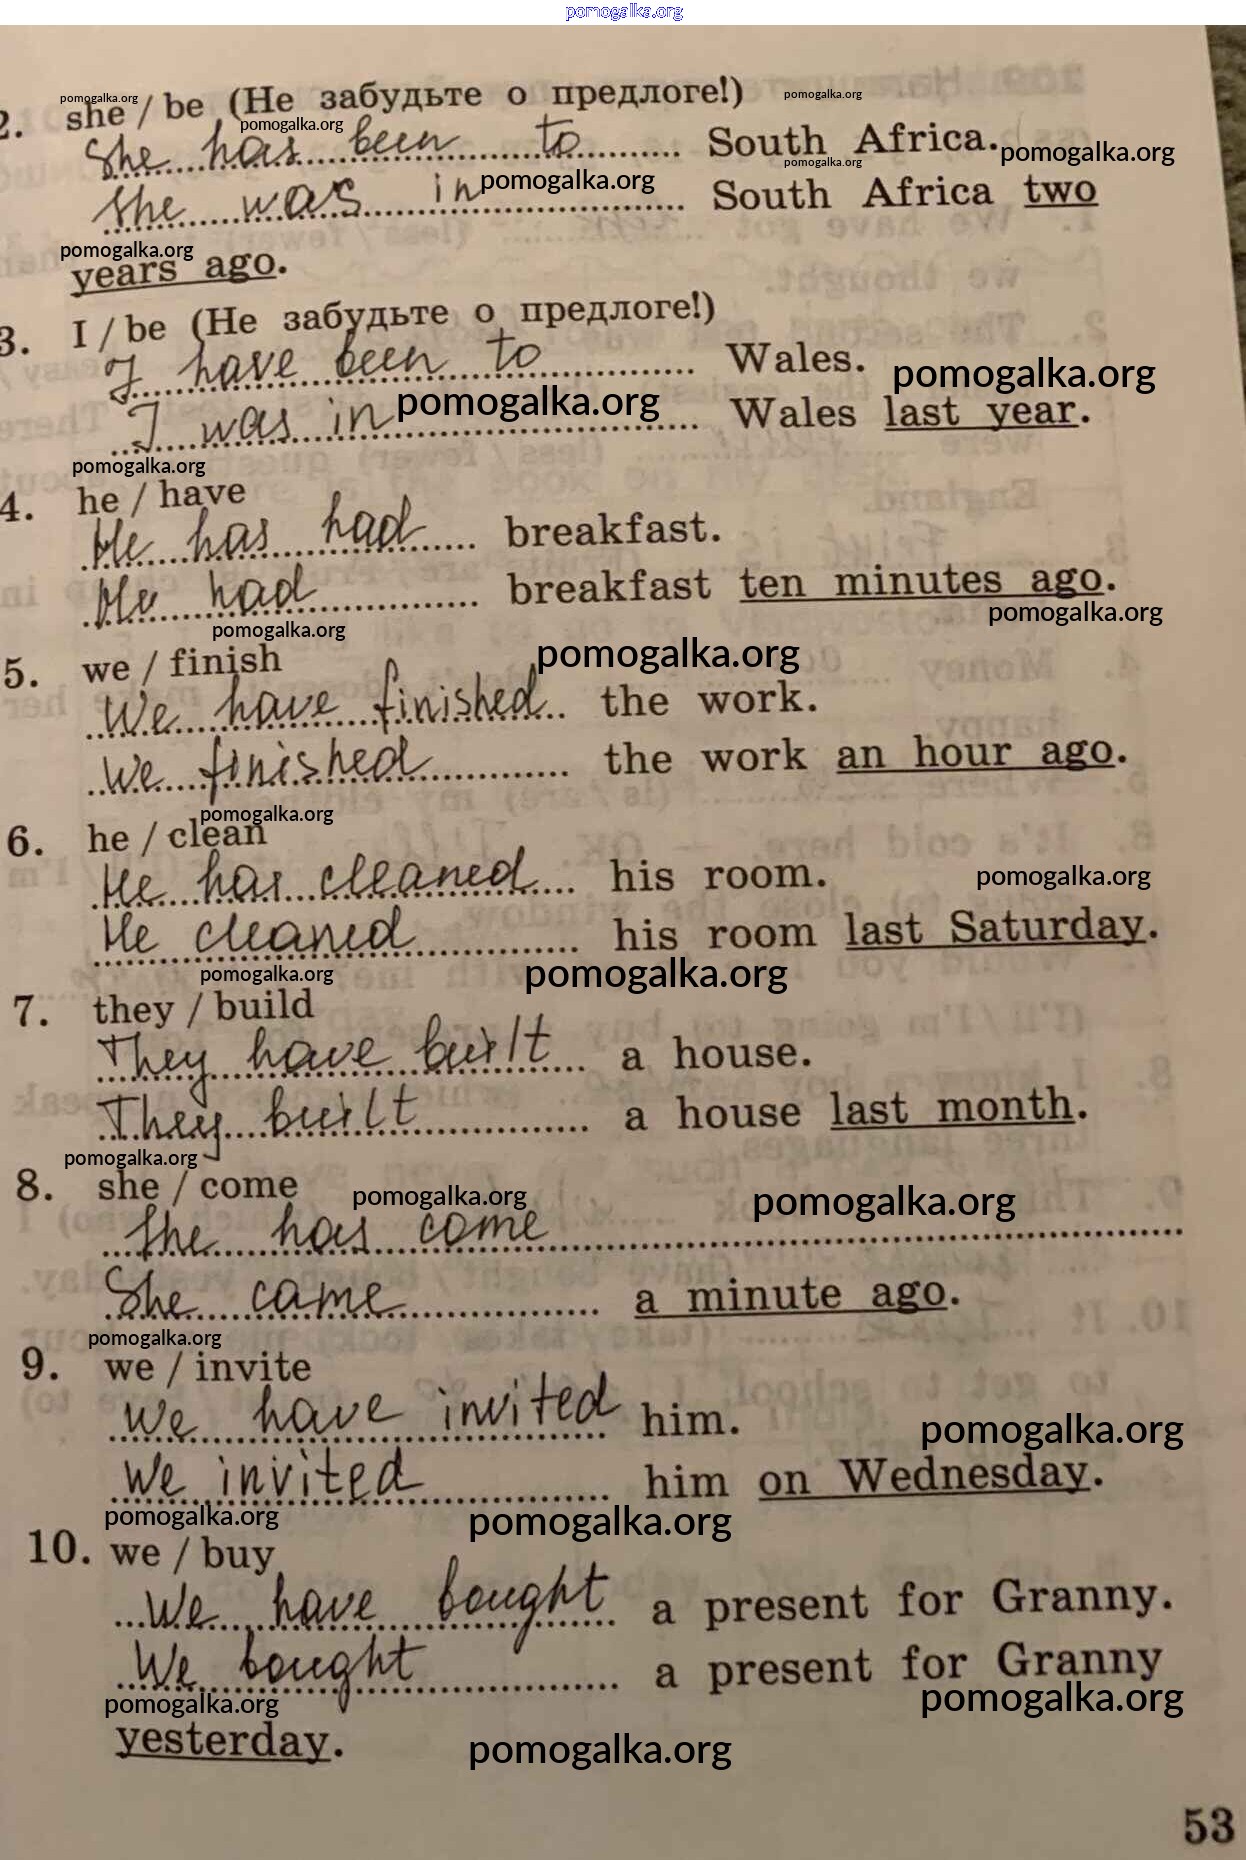 pomogalka.org
2. she / be (Не забудьте о предлоге!)
pomogalka.org
pomogalka.org
pomogalka.org
She has been to South Africa.
pomogalka.org
pomogalka.org
She was in South Africa two
pomogalka.org
pomogalka.org
years ago.
3. I / be (Не забудьте о предлоге!)
I have been to Wales.
pomogalka.org
I was in Wales last year.
pomogalka.org
pomogalka.org
4. he / have
He has had breakfast.
He had breakfast ten minutes ago.
pomogalka.org
pomogalka.org
5. we / finish
pomogalka.org
We have finished the work.
We finished the work an hour ago.
pomogalka.org
6. he / clean
He has cleaned his room.
pomogalka.org
He cleaned his room last Saturday.
pomogalka.org
pomogalka.org
7. they / build
They have built a house.
They built a house last month.
pomogalka.org
8. she / come
pomogalka.org
pomogalka.org
She has come
She came a minute ago.
pomogalka.org
9. we / invite
We have invited him.
pomogalka.org
We invited him on Wednesday.
pomogalka.org
pomogalka.org
10. we / buy
We have bought a present for Granny.
We bought a present for Granny
pomogalka.org
pomogalka.org
yesterday.
pomogalka.org
53